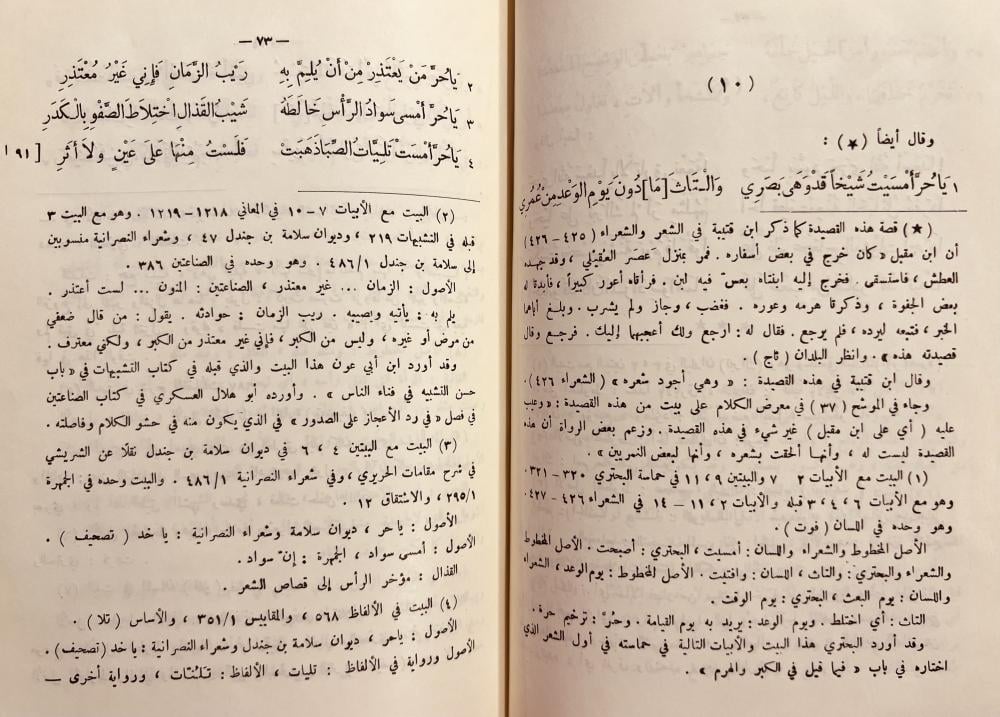 (١٠)
وقال أيضاً (★) :
١ يَا حُرَّ أَمْسَيْتُ شَيْخاً قَدْ وَهَى بَصَرِي وَالْتَاثَ [مَا] دُونَ يَوْمِ الْوَعْدِ مِنْ عُمُرِي
(★) قصة هذه القصيدة كما ذكر ابن قتيبة في الشعر والشعراء (٤٢٥ – ٤٢٦)
أن ابن مقبل « كان خرج في بعض أسفاره . فمر بمنزل عَصَر العُقَيْلي ، وقد جهده
العطش ، فاستسقى . فخرج إليه ابنتاه بعسّ فيه لبن . فرأتاه أعور كبيراً ، فأبدتا له
بعض الجفوة ، وذكرتا هرمه وعوره . فغضب ، وجاز ولم يشرب . وبلغ أباهما
الخبر ، فتبعه ليرده ، فلم يرجع . فقال له : ارجع ولك أعجبهما إليك . فرجع وقال
قصيدته هذه » . وانظر البلدان ( تاج ) .
وقال ابن قتيبة في هذه القصيدة : « وهي أجود شعره » ( الشعراء ٤٢٦) .
وجاء في الموشح ( ٣٧ ) في معرض الكلام على بيت من هذه القصيدة : « وعيب
عليه ( أي على ابن مقبل ) غير شيء في هذه القصيدة . وزعم بعض الرواة أن هذه
القصيدة ليست له ، وأنها ألحقت بشعره ، وأنها لبعض النمريين » .
(١) البيت مع الأبيات ٢ ٧ والبيتين ٩ ، ١١ في حماسة البحتري ٣٢٠ – ٣٢١.
وهو مع الأبيات ٦ ، ٤ ، ٣ قبله والأبيات ٢ ، ١١ – ١٤ في الشعراء ٤٢٦ – ٤٢٧.
وهو وحده في اللسان ( فوت ) .
الأصل المخطوط والشعراء واللسان : أمسيت ، البحتري : أصبحت . الأصل المخطوط
والشعراء والبحتري : والتاث ، اللسان : وافتيت . الأصل المخطوط : يوم الوعد ، الشعراء
واللسان : يوم البعث ، البحتري : يوم الوقت .
التاث : أي اختلط . ويوم الوعد : يريد به يوم القيامة . وحُرَّ : ترخيم حرة .
وقد أورد البحتري هذا البيت والأبيات التالية في حماسته في أول الشعر الذي
اختاره في باب « فيما قيل في الكبر والهرم » .
— ٧٣ —
٢ يَا حُرَّ مَنْ يَعْتَذِرْ مِنْ أَنْ يُلِمَّ بِهِ رَيْبُ الزَّمَانِ فَإِنِي غَيْرُ مُعْتَذِرِ
٣ يَا حُرَّ أَمْسَى سَوَادُ الرَّأْسِ خَالَطَهُ شَيْبُ القَذَالِ اخْتِلَاطَ الصَّفْوِ بِالْكَدَرِ
٤ يَا حُرَّ أَمْسَتْ تَلِيَّاتُ الصِّبَا ذَهَبَتْ فَلَسْتُ مِنْهَا عَلَى عَيْنٍ وَلاَ أَثَرِ [٩١ ا
(٢) البيت مع الأبيات ٧ – ١٠ في المعاني ١٢١٨ – ١٢١٩ . وهو مع البيت ٣
قبله في التشبيهات ٢١٩ ، وديوان سلامة بن جندل ٤٧ ، وشعراء النصرانية منسوبين
إلى سلامة بن جندل ٤٨٦/١ . وهو وحده في الصناعتين ٣٨٦ .
الأصول : الزمان ... غير معتذر ، الصناعتين : المنون ... لست أعتذر .
يلم به : يأتيه ويصيبه . ريب الزمان : حوادثه . يقول : من قال ضعفي
من مرض أو غيره ، وليس من الكبر ، فإني غير معتذر من الكبر ، ولكني معترف .
وقد أورد ابن أبي عون هذا البيت والذي قبله في كتاب التشبيهات في « باب
حسن التشبيه في فناء الناس » . وأورده أبو هلال العسكري في كتاب الصناعتين
في فصل « في رد الأعجاز على الصدور » في الذي يكون منه في حشو الكلام وفاصلته .
(٣) البيت مع البيتين ٤ ، ٦ في ديوان سلامة بن جندل نقلاً عن الشريشي
في شرح مقامات الحريري ، وفي شعراء النصرانية ٤٨٦/١ . والبيت وحده في الجمهرة
٢٩٥/١ ، والاشتقاق ١٢ .
الأصول : يا حر ، ديوان سلامة وشعراء النصرانية : يا خد ( تصحيف ) .
الأصول : أمسى سواد ، الجمهرة : إنّ سواد .
القذال : مؤخر الرأس إلى قصاص الشعر .
(٤) البيت في الألفاظ ٥٦٨ ، والمقاييس ٣٥١/١ ، والأساس ( تلا ) .
الأصول : يا حر ، ديوان سلامة بن جندل وشعراء النصرانية : يا خد (تصحيف) .
الأصول ورواية في الألفاظ : تليات ، الألفاظ : تلنّات ، ورواية أخرى —